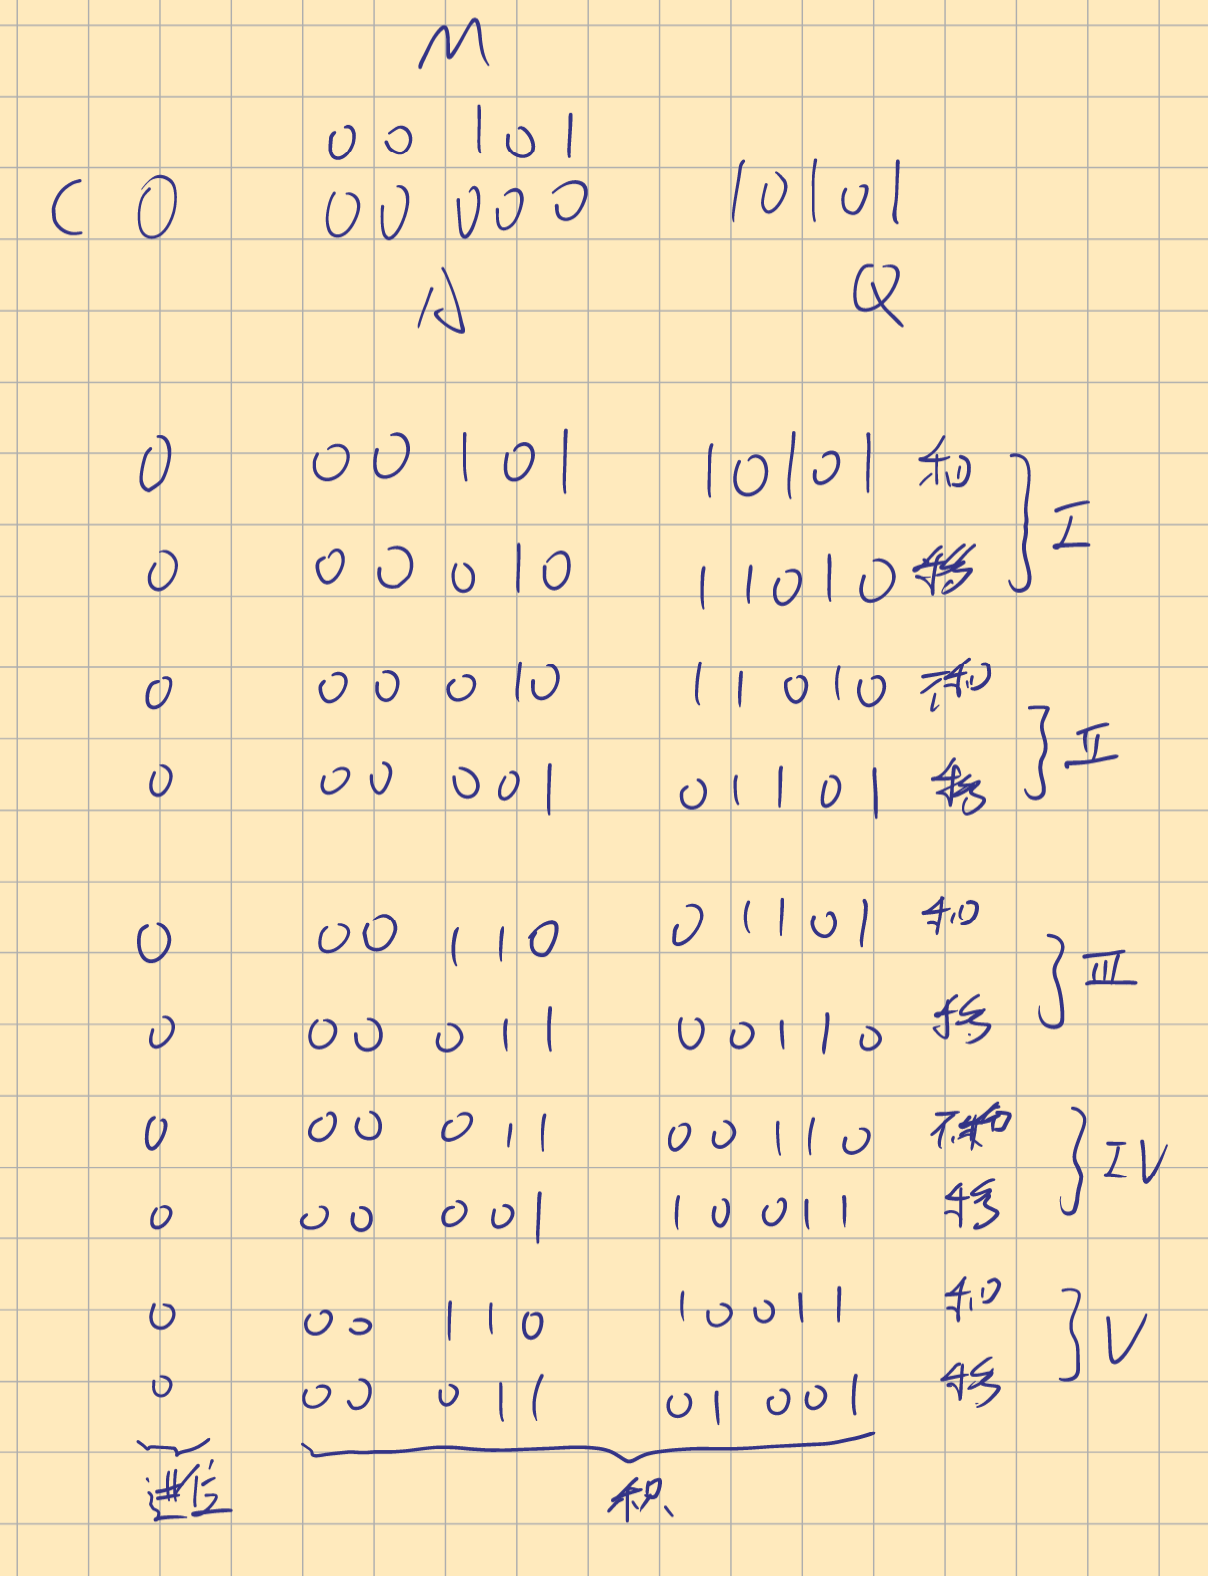 M
00 101
C 0 00 000 10101
A Q
0 00 101 10101 和
I
0 00 010 11010 移
0 00 010 11010 不和
II
0 00 001 01101 移
0 00 110 01101 和
III
0 00 011 00110 移
0 00 011 00110 不和
IV
0 00 001 10011 移
0 00 110 10011 和
V
0 00 011 01001 移
进位 积